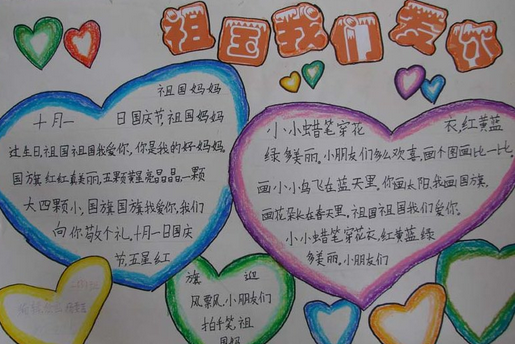 祖国我们爱你
祖国妈妈
十月一日国庆节,祖国妈妈
过生日,祖国祖国我爱你,你是我的好妈妈.
国旗红红真美丽,五颗星星亮晶晶,一颗
大四颗小,国旗国旗我爱你,我们
向你敬个礼,十月一日国庆
节,五星红
旗迎
风飘飘,小朋友们
拍手笔,祖
国妈
小小蜡笔穿花衣,红黄蓝
绿多美丽,小朋友们多么欢喜,画个图画比一比,
画小小鸟飞在蓝天里,你画太阳,我画国旗,
画花朵长在春天里,祖国祖国我们爱你.
小小蜡笔穿花衣,红黄蓝绿
多美丽,小朋友们